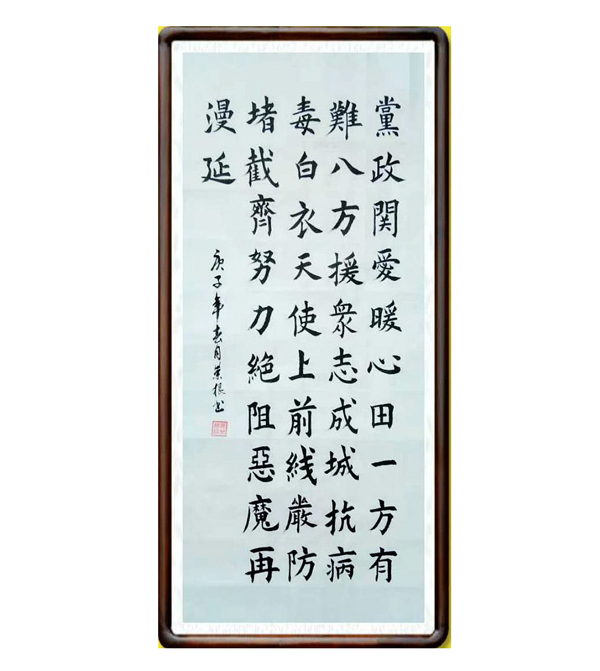 黨政関愛暖心田一方有
難八方援衆志成城抗病
毒白衣天使上前綫嚴防
堵截齊努力絕阻惡魔再
漫延
庚子年春月